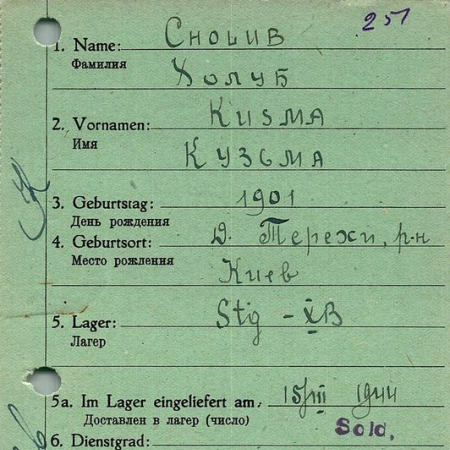 257
1. Name: CHOLUB
Фамилия
Холуб
2. Vornamen: KUSMA
Имя
Кузьма
3. Geburtstag: 1901
День рождения
4. Geburtsort: д. Терехи, р-н
Место рожления
Киев
5. Lager: Stlg - XB
Лагер
5a. Im Lager eingeliefert am: 15/III 1944
Доставлен в лагер (число)
Sold.
6. Dienstgrad: